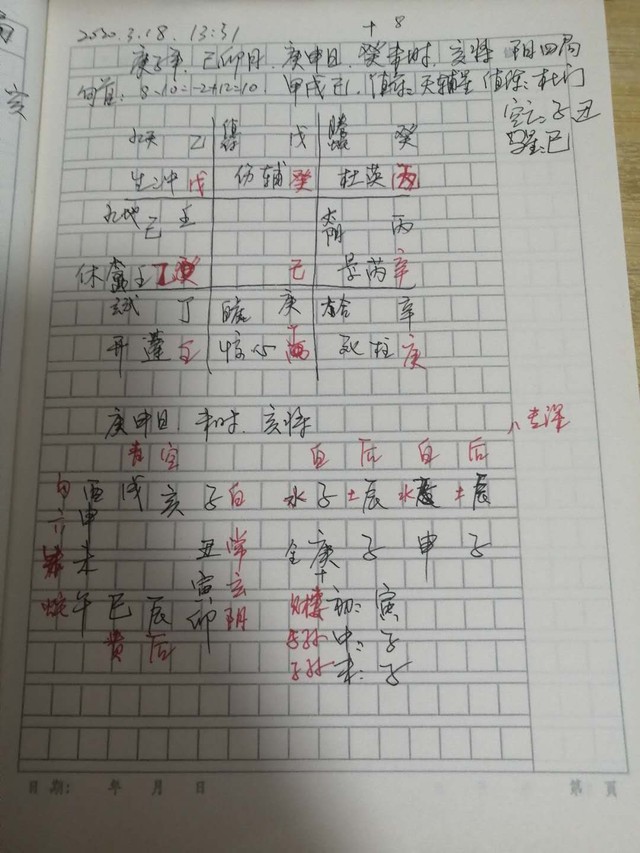 亥
2020.3.18. 13:31 +8
庚子年. 己卯月. 庚申日. 癸未时. 亥将 阳四局
旬首: 8-10=-2+12=10. 甲戌己. 值符: 天辅星 值使: 杜门
空亡: 子丑
马星: 巳
九天 己 值符 戊 螣蛇 癸
生 冲 戊 伤 辅 癸 杜 英 丙
九地 壬 太阴 丙
己
休 壬 己 景 芮 辛
玄武 丁 白虎 庚 六合 辛
开 蓬 惊 心 死 柱 庚
庚申日. 未时. 亥将 八专课
青 空 白 后 白 后
勾 酉 戌 亥 子 白 水 子 土 辰 水 土 辰
六 申
未 丑 常 金 庚 子 申 子
寅 玄
午 巳 辰 卯 阴 初: 寅
贵 后 子孙 中: 子
子孙 末: 子
日期: 年 月 日 第 页